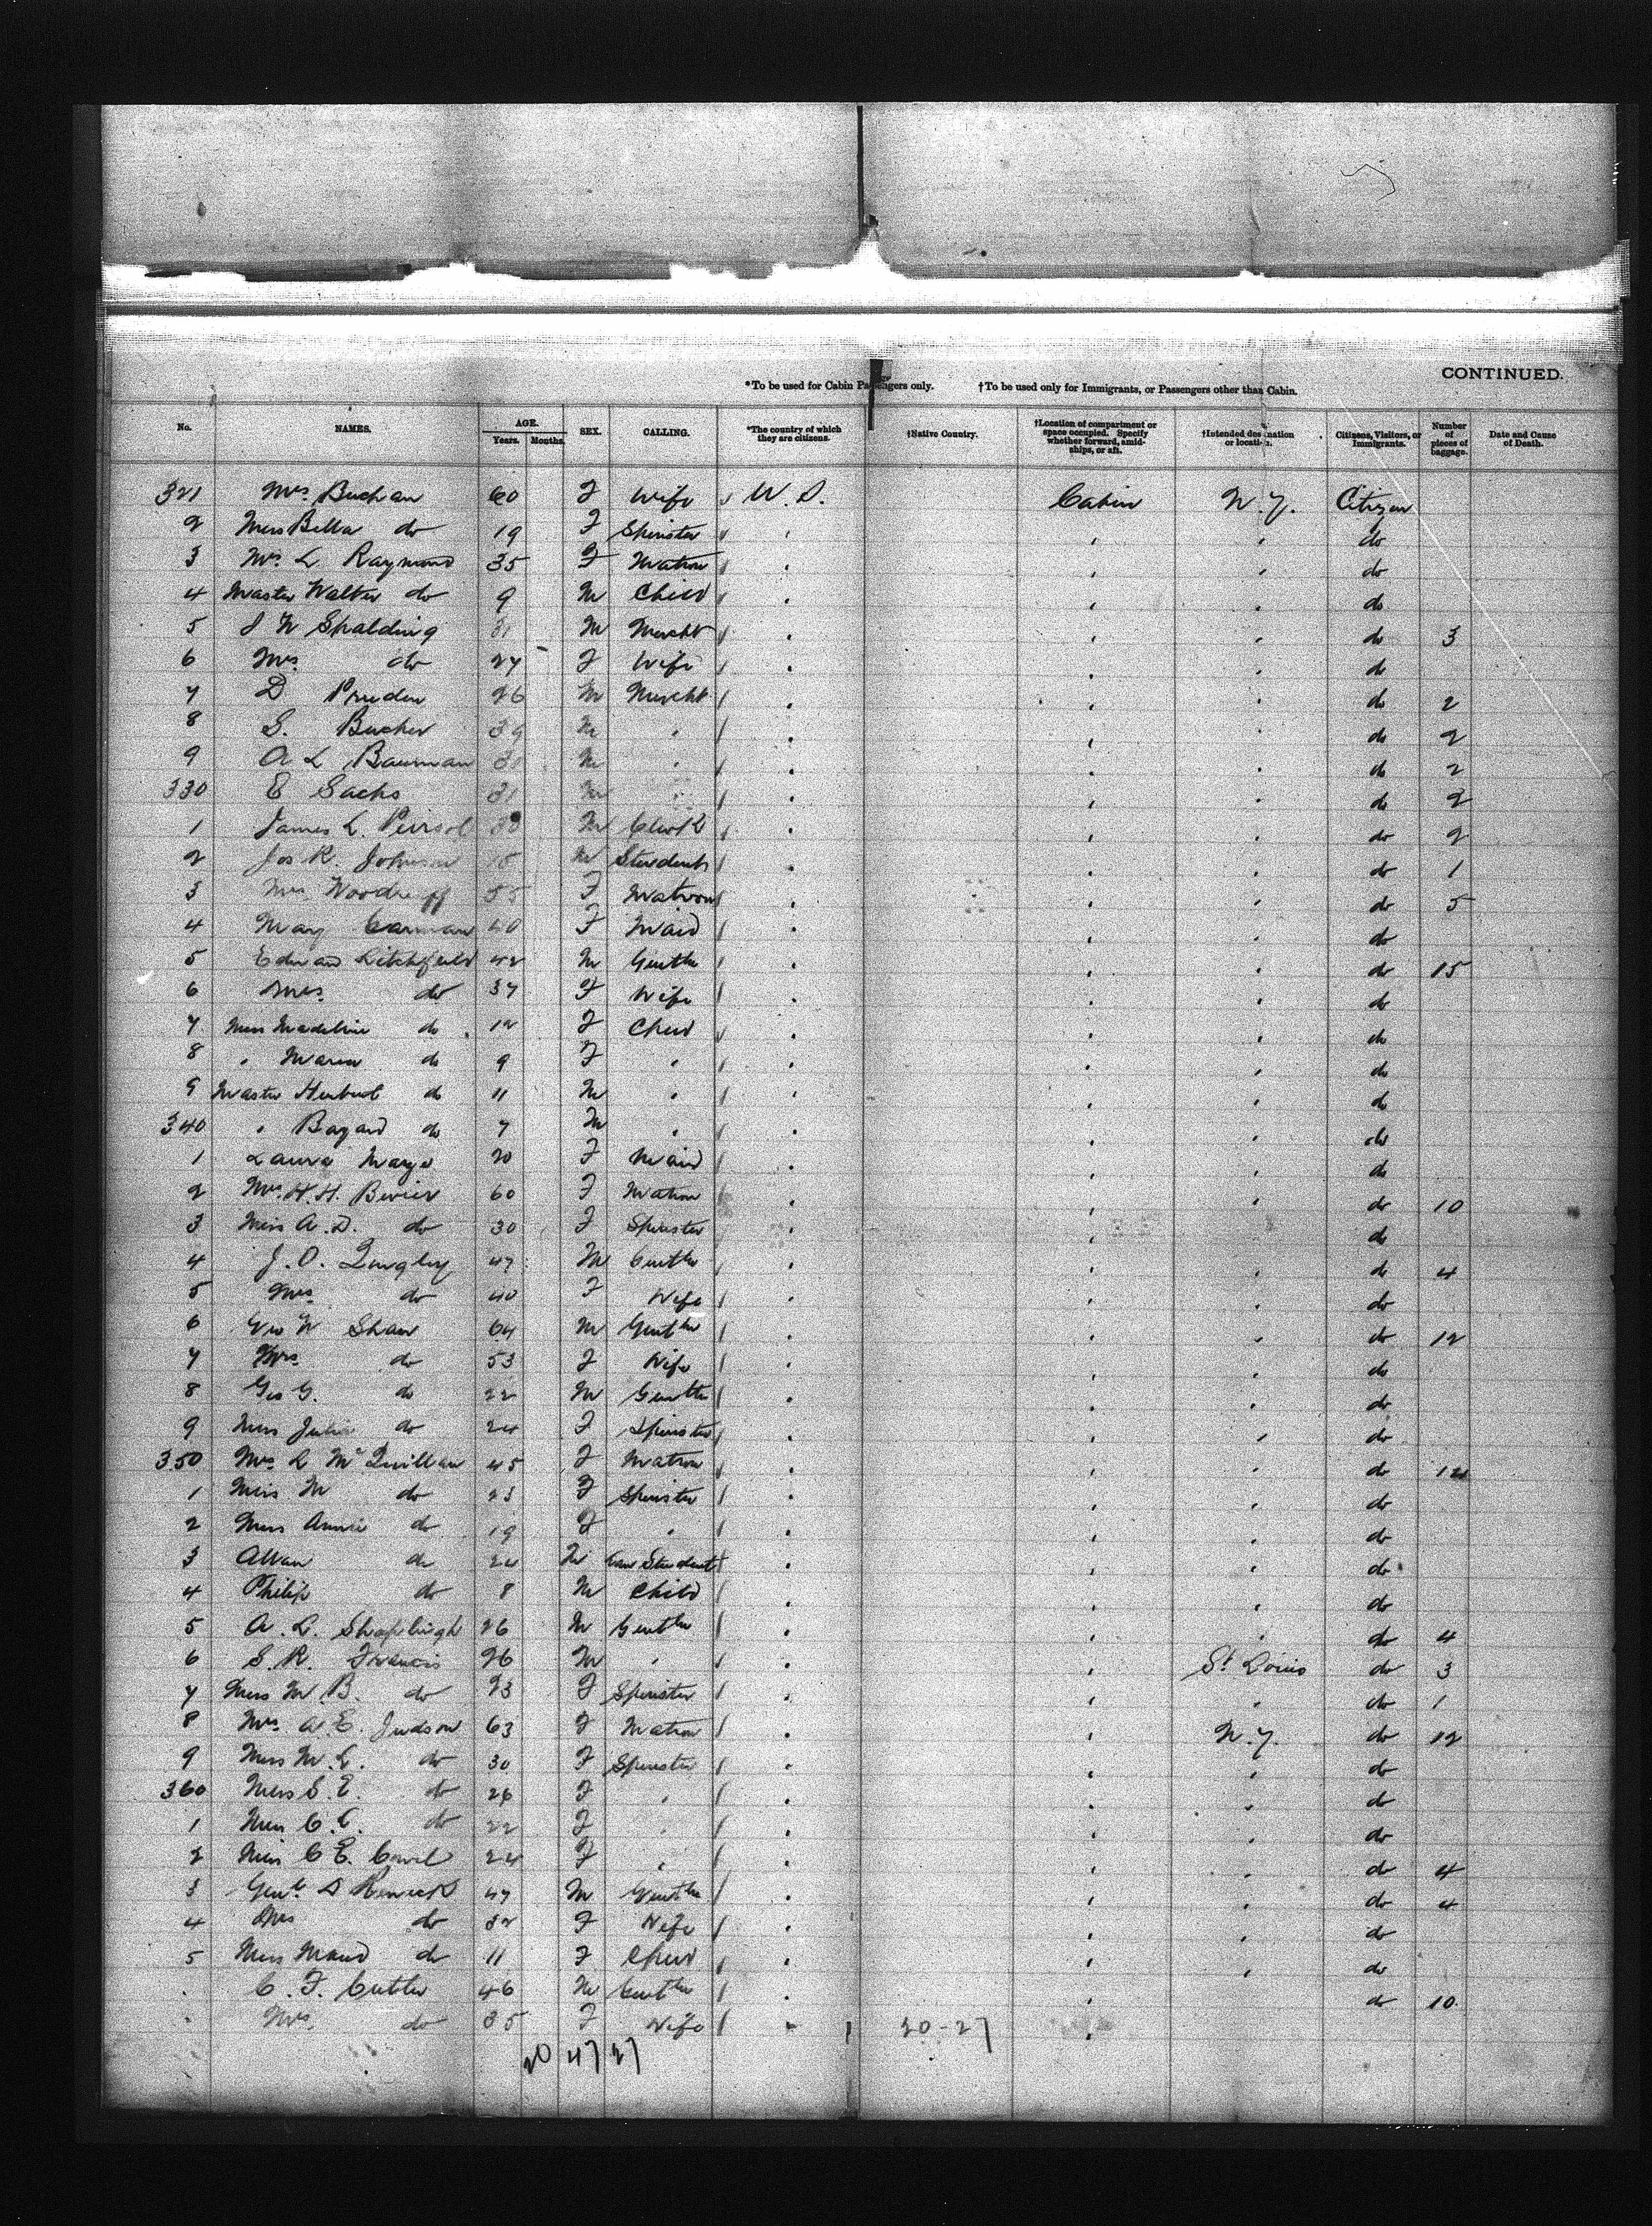 CONTINUED.
*To be used for Cabin Passengers only. †To be used only for Immigrants, or Passengers other than Cabin.
No. NAMES. AGE. Years. Months. SEX. CALLING. *The country of which they are citizens. †Native Country. †Location of compartment or space occupied. Specify whether forward, amidships, or aft. †Intended destination or location. Citizens, Visitors, or Immigrants. Number of pieces of baggage. Date and Cause of Death.
321 Mrs Buchan 60 F Wife U.S. Cabin N.Y. Citizen
2 Miss Bella do 19 F Spinster do
3 Mrs L Raymond 35 F Matron do
4 Master Walter do 9 M Child do
5 J W Spalding 31 M Mercht do 3
6 Mrs do 27 F Wife do
7 D Pruden 26 M Mercht do 2
8 S. Bucher 39 M " do 2
9 A L Bauman 31 M " do 2
330 E Sachs 31 M " do 2
1 James L. Peirsol M Clerk do 2
2 Jos R. Johnson 18 M Student do 1
3 Mrs Woodruff 55 F Matron do 5
4 Mary Carman 40 F Maid do
5 Edward Litchfield 42 M Gentln do 15
6 Mrs do 37 F Wife do
7 Miss Madeline do 12 F Child do
8 " Maria do 9 F " do
9 Master Herbert do 11 M " do
340 " Bayard do 7 M " do
1 Laura 20 F Maid do
2 Mrs H.H. Bevier 60 F Matron do 10
3 Miss A.D. do 30 F Spinster do
4 J.O. 47 M Gentln do 4
5 Mrs do 40 F Wife do
6 Geo W Shaw 64 M Gentln do 12
7 Mrs do 53 F Wife do
8 Geo G. do 22 M Gentln do
9 Miss Julia do 24 F Spinster do
350 Mrs L McQuillan 45 F Matron do 12
1 Miss M do 23 F Spinster do
2 Miss Annie do 19 F " do
3 Allan do 24 M Law Student do
4 Philip do 8 M Child do
5 A.L. Shapleigh 26 M Gentln do 4
6 S.R. Francis 26 M " St Louis do 3
7 Miss M.B. do 23 F Spinster " do 1
8 Mrs A.E. Judson 63 F Matron N.Y. do 12
9 Miss M.L. do 30 F Spinster do
360 Miss S.E. do 26 F " do
1 Miss C.C. do 22 F " do
2 Miss C E. 24 F " do 4
3 Genl D Renick 47 M Gentln do 4
4 Mrs do 32 F Wife do
5 Miss Maud do 11 F Child do
C. F. Cutler 46 M Gentln do 10
Mrs. do 35 F Wife 20-27
20 47 27